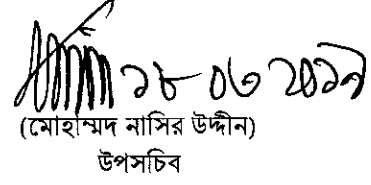 ১৮-০৬-২০১৭
(মোহাম্মদ নাসির উদ্দীন)
উপসচিব